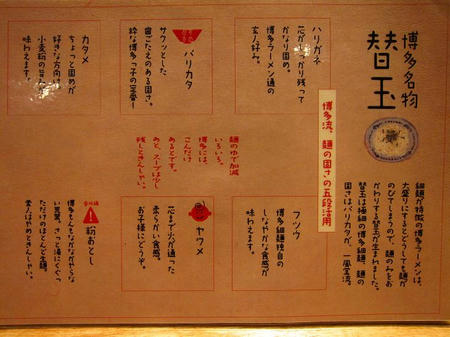 博多名物
替玉
細麺が特徴の博多ラーメンは、
大盛りにするとどうしても麺が
のびてしまうので、麺のみをお
かわりする替玉が生まれました。
替玉は極細の博多細麺、麺の
固さはバリカタが、一風堂流。
博多流、麺の固さの五段活用
ハリガネ
芯がしっかり残って
かなり固め。
博多ラーメン通の
玄人好み。
バリカタ
サクッとした
歯ごたえのある固さ。
粋な博多っ子の定番!
カタメ
ちょっと固めが
好きな方向け
小麦粉の旨みが
味わえます。
麺のゆで加減
いろいろ。
博多には、
こんだけ
あるとです。
あと、スープは少し
残しときんしゃい。
フツウ
博多細麺独自の
しなやかな食感が
味わえます。
ヤワメ
芯まで火が通った
柔らかい食感。
お子様にどうぞ。
番外編
粉おとし
博多もんもなかなかやらな
い驚異。さっと湯にくぐっ
ただけのほとんど生麺。
素人はやめときんしゃい。